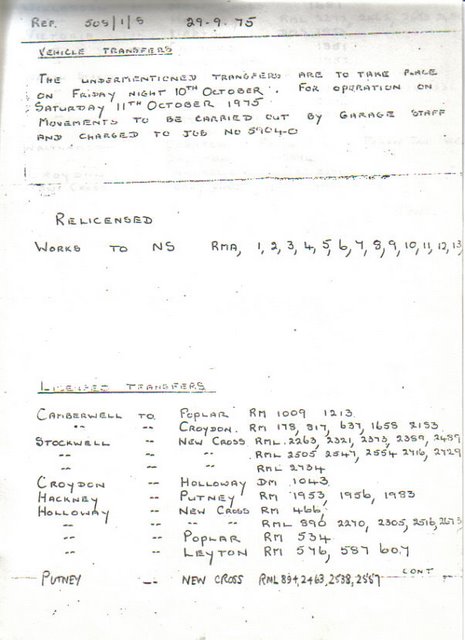 REF. 505/1/S 29-9-75
VEHICLE TRANSFERS
THE UNDERMENTIONED TRANSFERS ARE TO TAKE PLACE
ON FRIDAY NIGHT 10TH OCTOBER. FOR OPERATION ON
SATURDAY 11TH OCTOBER 1975
MOVEMENTS TO BE CARRIED OUT BY GARAGE STAFF
AND CHARGED TO JOB NO 5904-0
RELICENSED
WORKS TO NS RMA, 1, 2, 3, 4, 5, 6, 7, 8, 9, 10, 11, 12, 13
LICENSED TRANSFERS
CAMBERWELL TO POPLAR RM 1009 1213
-- -- CROYDON RM 178, 317, 637, 1658 2153
STOCKWELL -- NEW CROSS RML 2263, 2321, 2373, 2389, 2489
-- -- -- RML 2505 2547, 2554 2716, 2729
-- -- -- RML 2734
CROYDON -- HOLLOWAY DM 1043
HACKNEY -- PUTNEY RM 1953, 1956, 1983
HOLLOWAY -- NEW CROSS RM 466
-- -- -- -- RML 896 2270, 2305, 2516, 2673
-- -- POPLAR RM 534
-- -- LEYTON RM 576, 587 607
CONT
PUTNEY -- NEW CROSS RML 894, 2463, 2538, 2557